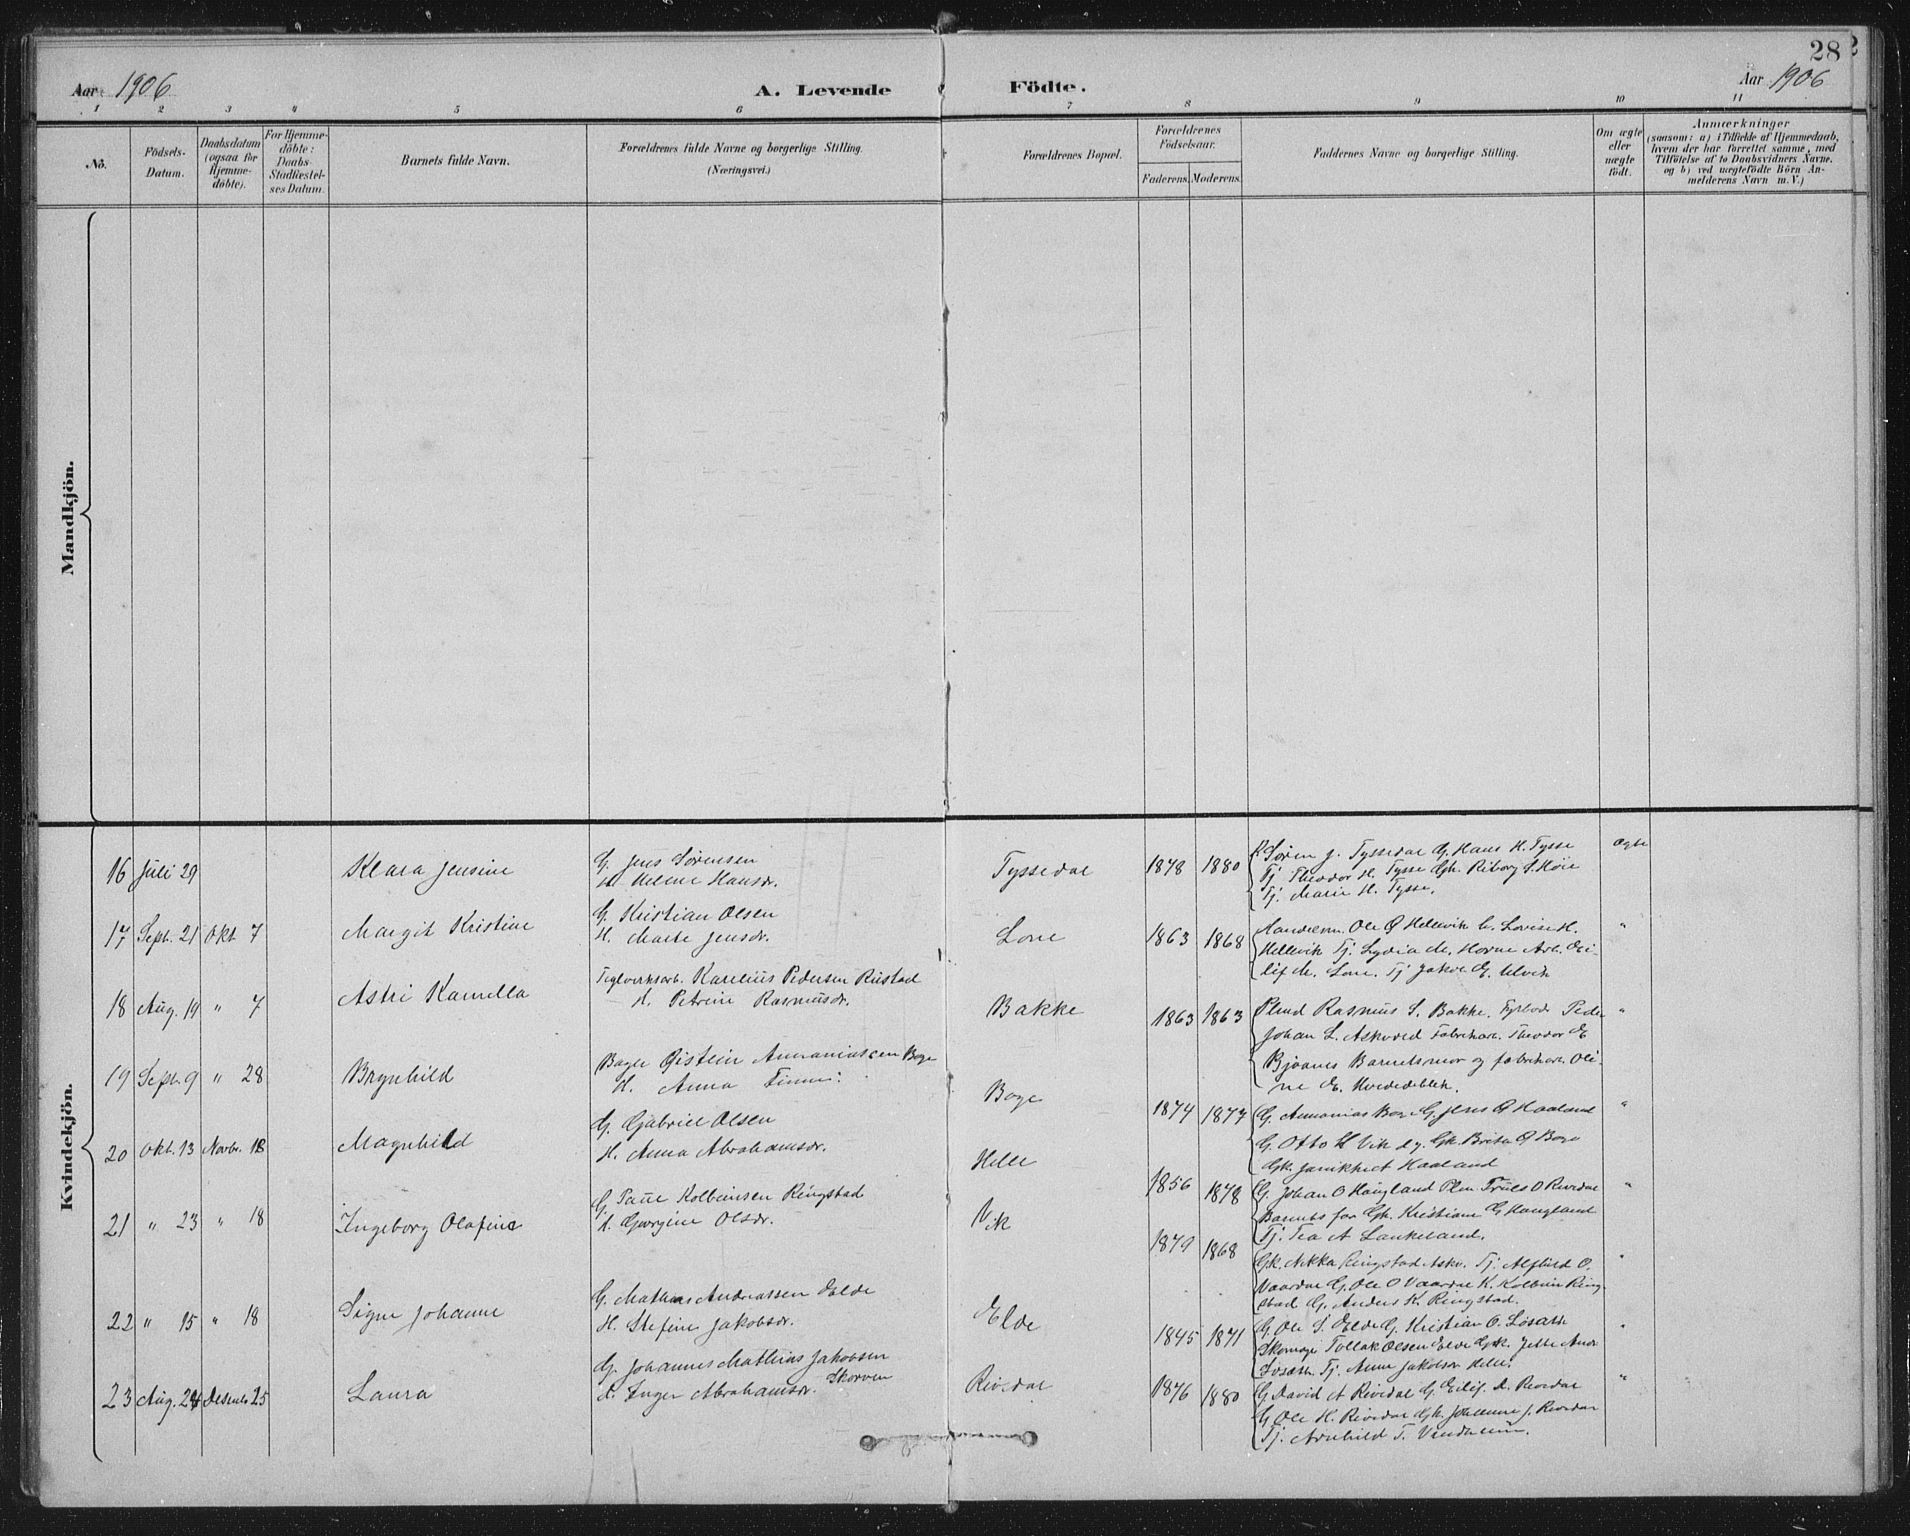 28
Aar 1906 A. Levende Födte. Aar 1906
1 2 3 4 5 6 7 8 9 10 11
No.
Födsels-
Datum.
Daabsdatum
(ogsaa for
Hjemme-
döbte).
For Hjemme-
döbte:
Daabs-
Stadfæstel-
ses Datum.
Barnets fulde Navn.
Forældrenes fulde Navne og borgerlige Stilling.
(Næringsvei.)
Forældrenes Bopæl.
Forældrenes
Födselsaar.
Faderens. Moderens.
Faddernes Navne og borgerlige Stilling.
Om ægte
eller
uægte
födt.
Anmærkninger
(saasom: a) i Tilfælde af Hjemmedaab,
hvem der har forrettet samme, med
Tilföielse af to Daabsvidners Navne.
og b) ved uægtefödte Börn An-
melderens Navn m. V.)
Mandkjön.
Kvindekjön.
16 Juli 29 Klara Jensine
G. Jens Sørensen
H. Helene Hansdr.
Tyssedal 1878 1880
K. Søren J. Tyssedal G. Hans H. Tysse
Tj. Theodor H. Tysse Gk. Riborg S. Høie
Tj. Marie H. Tysse.
Ægte
17 Sept. 21 Okt 7 Margit Kristine
G. Kristian Olsen
H. Marte Jensdr.
Lone 1863 1868
Ole O Hellevik Lovise H.
Hellevik Tj. Lydia M. Horne Arb. Ei-
lif M. Lone. Tj Jakob E. Ulvik
"
18 Aug. 19 " 7 Astri Kamella
Teglverksarb. Karelius Pedersen Rustad
H. Petrine Rasmusdr.
Bakke 1863 1863
Rasmus S. Bakke. Peder
Johan L. Askvold Fabrikarb. Theodor E
Bjoanes Barnets mor og fabrikarb. Oli-
ne E.
"
19 Sept. 9 " 28 Brynhild
Øistein Annaniassen Boge
H. Anna
Boge 1874 1877
G. Annanias Boge G. Jens O Haaland
G. Otto H Vik Gk. Brita O Boge
Gk. Haaland
"
20 Okt. 13 Novbr. 18 Magnhild
G. Gabriel Olsen
H. Anna Abrahamsdr.
Helle 1856 1878
G. Johan O Haugland Truls O Rivedal
Barnets far Gk. Kristiane G Haugland
Tj. Tea A Lankeland.
"
21 " 23 " 18 Ingeborg Olafine
G. Paul Kolbeinsen Ringstad
H. Georgine Olsdr.
Vik 1879 1868
Gk. Ringstad Askv. Tj. Alfhild O.
Vaardal G. Ole O Vaardal K. Kolbein Ring-
stad G. Anders K. Ringstad.
"
22 " 15 " 18 Signe Johanne
G. Mathias Andreassen Elde
H. Stefine Jakobsdr.
Elde 1845 1871
G. Ole S. Elde G. Kristian O. Losæth
Skomag. Tollak Olsen Elde Gk. Jette Andr
Losæth. Tj. Anne Jakobsen Helle.
"
23 Aug. 24 Desemb. 25 Laura
G. Johannes Mathias Jakobsen
H. Inger Abrahamsdr. Skorven
Rivedal 1876 1880
G. David A Rivedal G. Eilif D. Rivedal
G. Ole H. Rivedal Gk. Johanne J. Rivedal
Tj. Arnhild T.
"